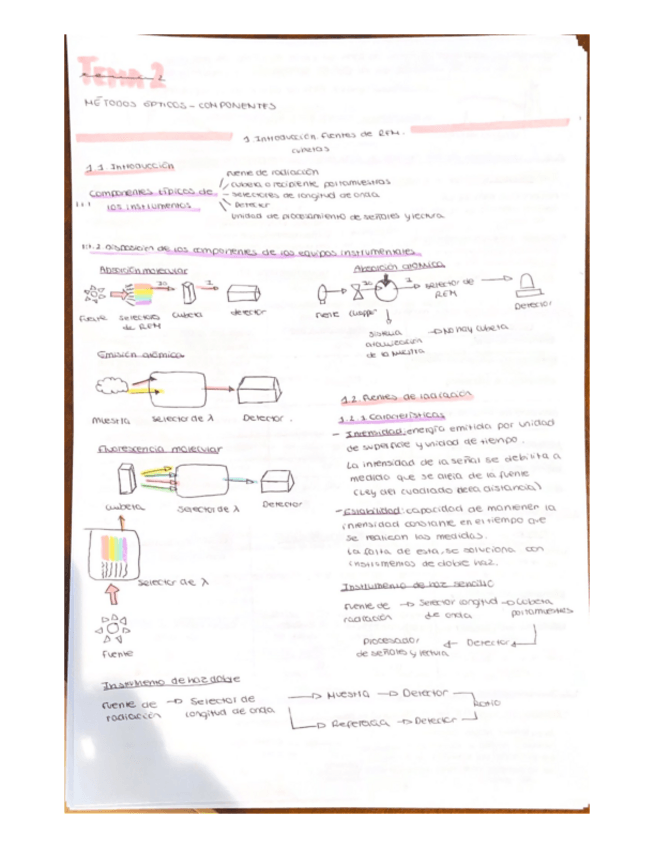 Tema 2
MÉTODOS ÓPTICOS - COMPONENTES
1. Introducción. Fuentes de REM.
cubetas
1.1. Introducción
Componentes típicos de
los instrumentos
1.1.1
Fuente de radiación
cubeta o recipiente portamuestras
selectores de longitud de onda
Detector
Unidad de procesamiento de señales y lectura
1.1.2 disposición de los componentes de los equipos instrumentales
Absorción molecular
Fuente
selectores
de REM
cubeta
detector
Absorción atómica
Fuente
chopper
Sistema
atomización
de la muestra
No hay cubeta
selector de
REM
Detector
Emisión atómica
Muestra
selector de λ
Detector.
Fluorescencia molecular
cubeta
selector de λ
Detector
selector de λ
Fuente
1.2. Fuentes de radiación
1.2.1 Características
- Intensidad: energía emitida por unidad
de superficie y unidad de tiempo.
La intensidad de la señal se debilita a
medida que se aleja de la fuente
(Ley del cuadrado de la distancia)
- Estabilidad: capacidad de mantener la
intensidad constante en el tiempo que
se realizan las medidas.
La falta de esta, se soluciona con
instrumentos de doble haz.
Instrumento de haz sencillo
Fuente de
radiación
selector longitud
de onda
cubeta
portamuestras
Detector
procesador
de señales y lectura
Instrumento de haz doble
Fuente de
radiación
Selector de
longitud de onda
Muestra
Detector
Referencia
Detector
Ratio